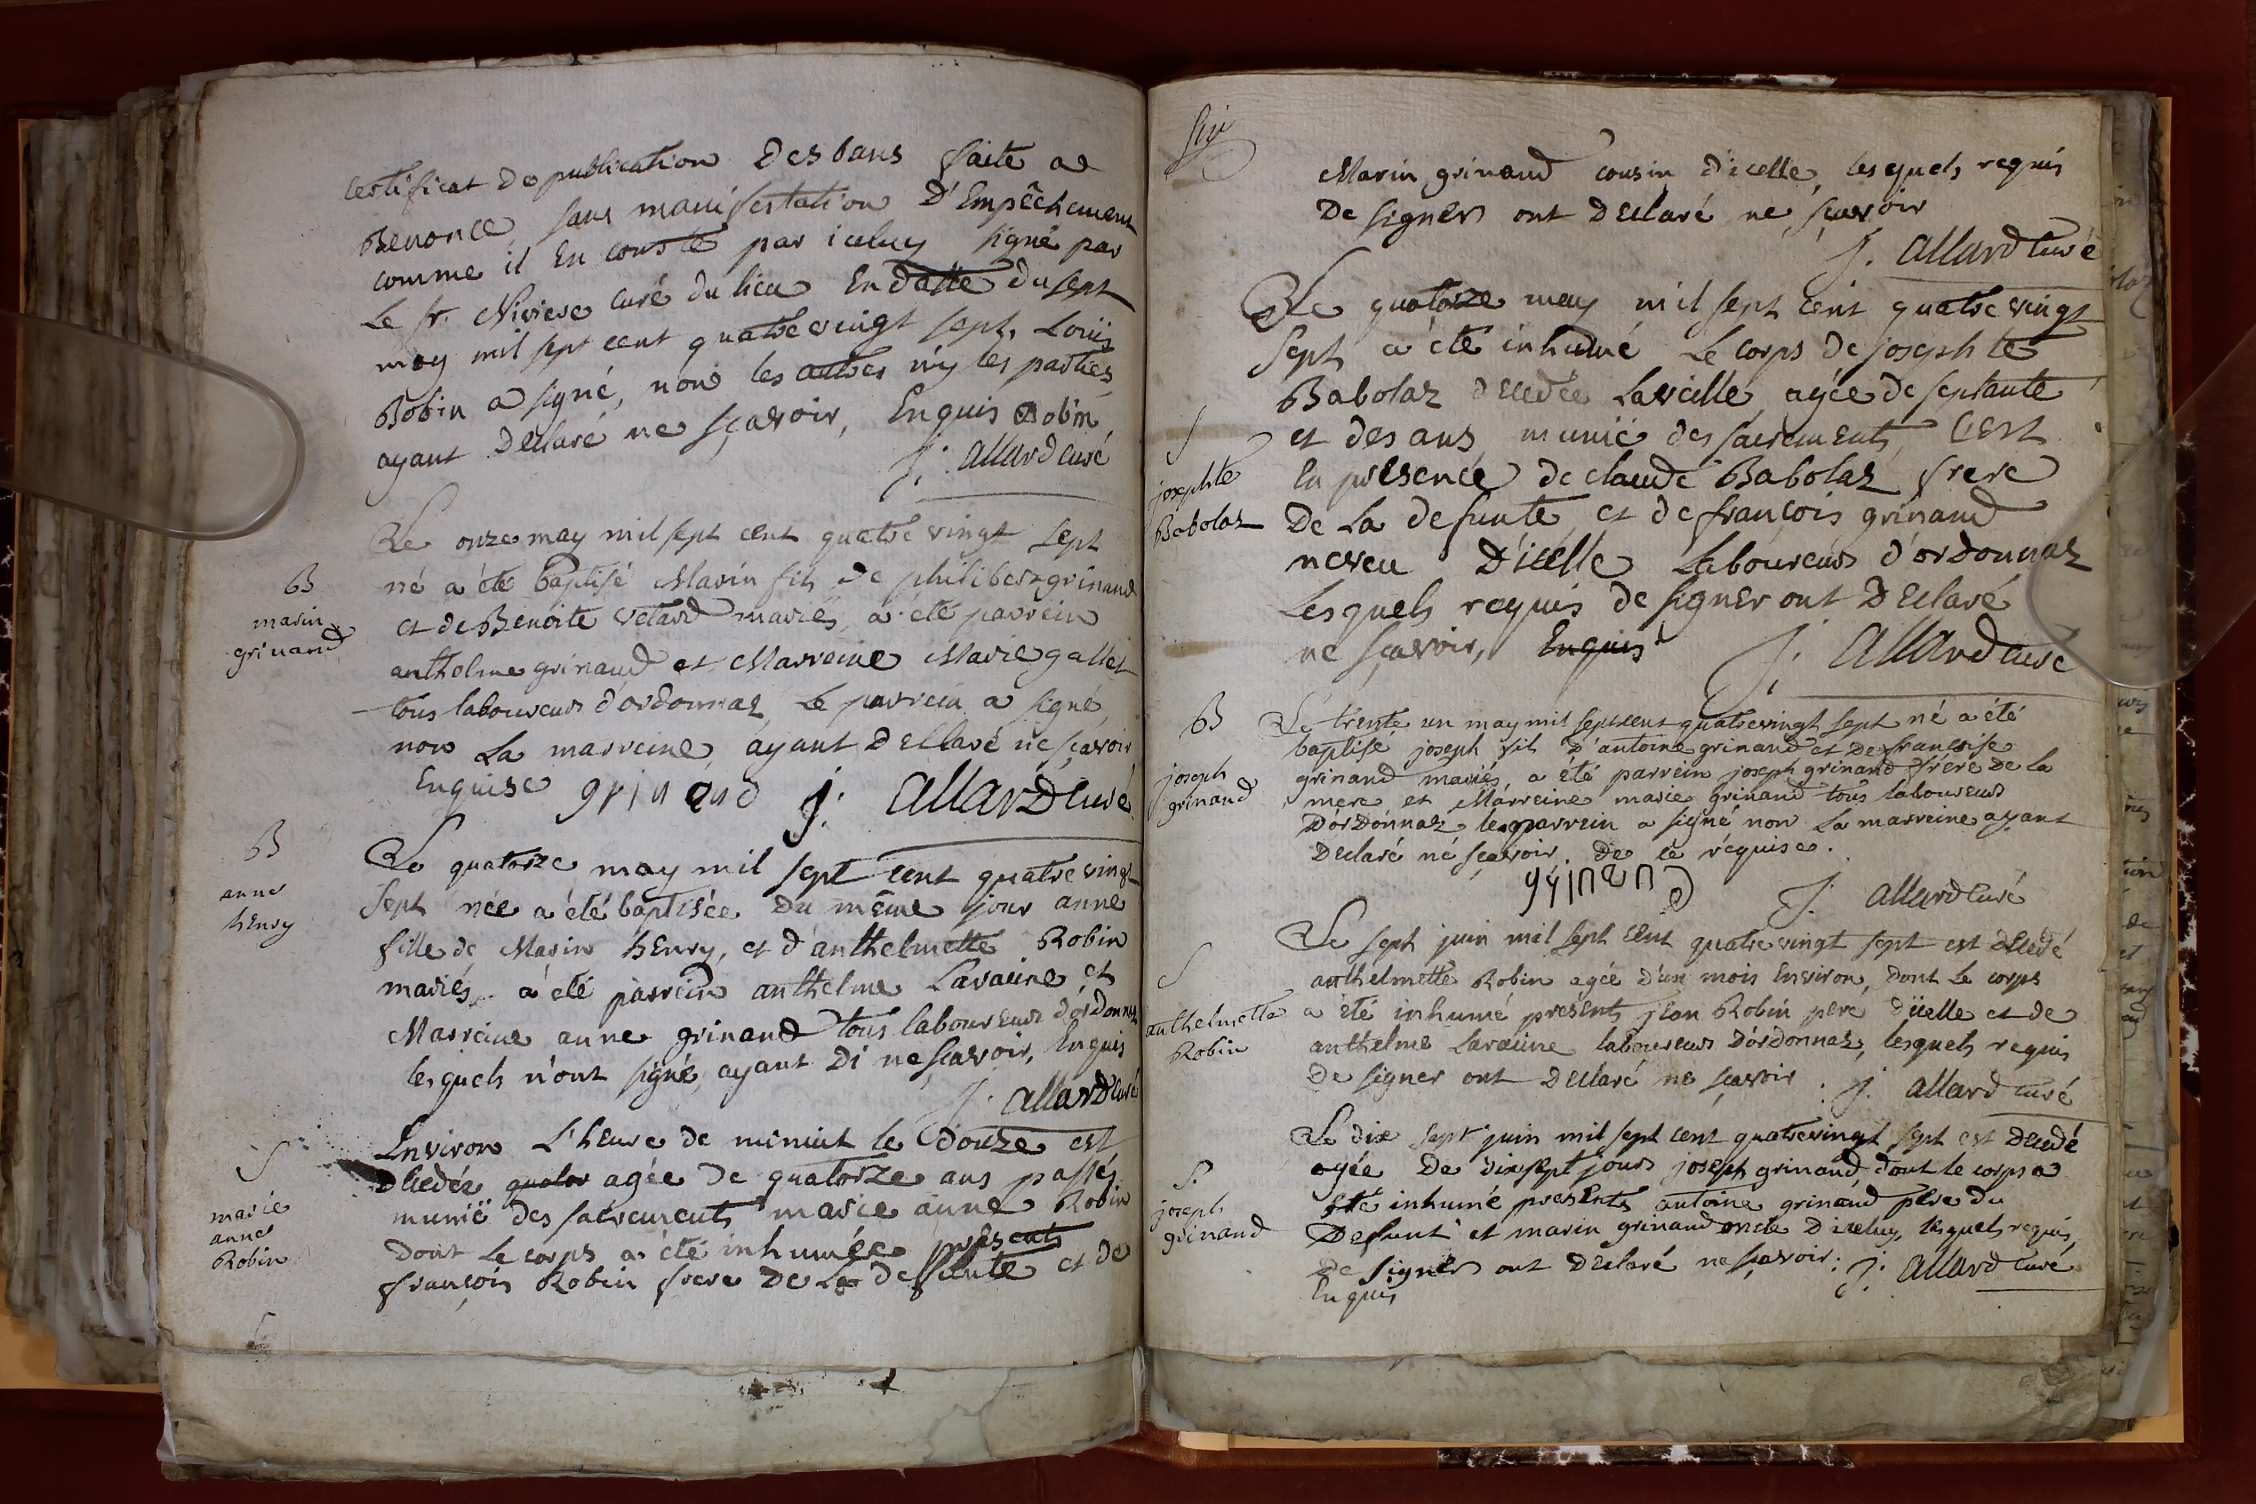 certificat de publication des bans faite a
Benonce sans manifestation d'Empêchement
comme il en conste par iceluy signé par
Le sr. Niviere curé du lieu En datte du sept
may mil sept cent quatre vingt sept, Louis
Robin a signé, non les autres n'y les parties
ayant declaré ne sçavoir, Enquis Robin
J. allard curé
Le onze may mil sept cent quatre vingt sept
né a été baptisé Marin fils de philibert grinand
et de Benoite vetard mariés, a été parrein
anthelme grinand et Marreine Marie gallet
tous laboureurs d'ordonnaz, Le parrein a signé,
non La marreine, ayant declaré ne sçavoir
Enquise grinand J. allard curé
B
marin
grinand
Le quatorze may mil sept cent quatre vingt
sept née a été baptisée du même jour anne
fille de Marin henry, et d'anthelmette Robin
mariés. a été parrein anthelme Lavaiine et
Marreine anne grinand tous laboureurs d'ordonnaz
lesquels n'ont signé, ayant di ne sçavoir, Enquis
J. allard curé
B
anne
henry
Environ L'heure de minuit le douze est
decedée quator agée de quatorze ans passés
munie des sacrements marie anne Robin
dont Le corps a été inhumée presents
françois Robin frere de La defunte et de
S
marie
anne
Robin
S
Marin grinand cousin d'icelle, lesquels requis
de signer ont declaré ne sçavoir
J. allard curé
Le quatorze may mil sept cent quatre vingt
sept a été inhumé Le corps de josephte
Babolaz decedée La veille, agée de septante
et des ans munie des sacrements, c'est
En presence de claude Babolaz frere
de La defunte et de françois grinand
neveu d'icelle Laboureurs d'ordonnaz
Lesquels requis de signer ont declaré
ne sçavoir, Enquis J. allard curé
S
josephte
Babolaz
Le trente un may mil sept cent quatre vingt sept né a été
baptisé joseph fils d'antoine grinand et de françoise
grinand mariés, a été parrein joseph grinand frere de la
mere et Marreine marie grinand tous laboureurs
d'ordonnaz, le parrein a signé non La marreine ayant
declaré ne sçavoir. de ce requise.
grinand J. allard curé
B
joseph
grinand
Le sept juin mil sept cent quatre vingt sept est decedé
anthelmette Robin agée d'un mois Environ, dont Le corps
a été inhumé presents jean Robin pere d'icelle et de
anthelme Lavaiine laboureurs d'ordonnaz, lesquels requis
de signer ont declaré ne sçavoir. J. allard curé
S
anthelmette
Robin
Le dix sept juin mil sept cent quatre vingt sept est decedé
agée de dix sept jours joseph grinand, dont le corps a
été inhumé presents antoine grinand pere du
defunt et marin grinand oncle d'iceluy, lesquels requis
de signer ont declaré ne sçavoir: J. allard curé
Enquis
S.
joseph
grinand